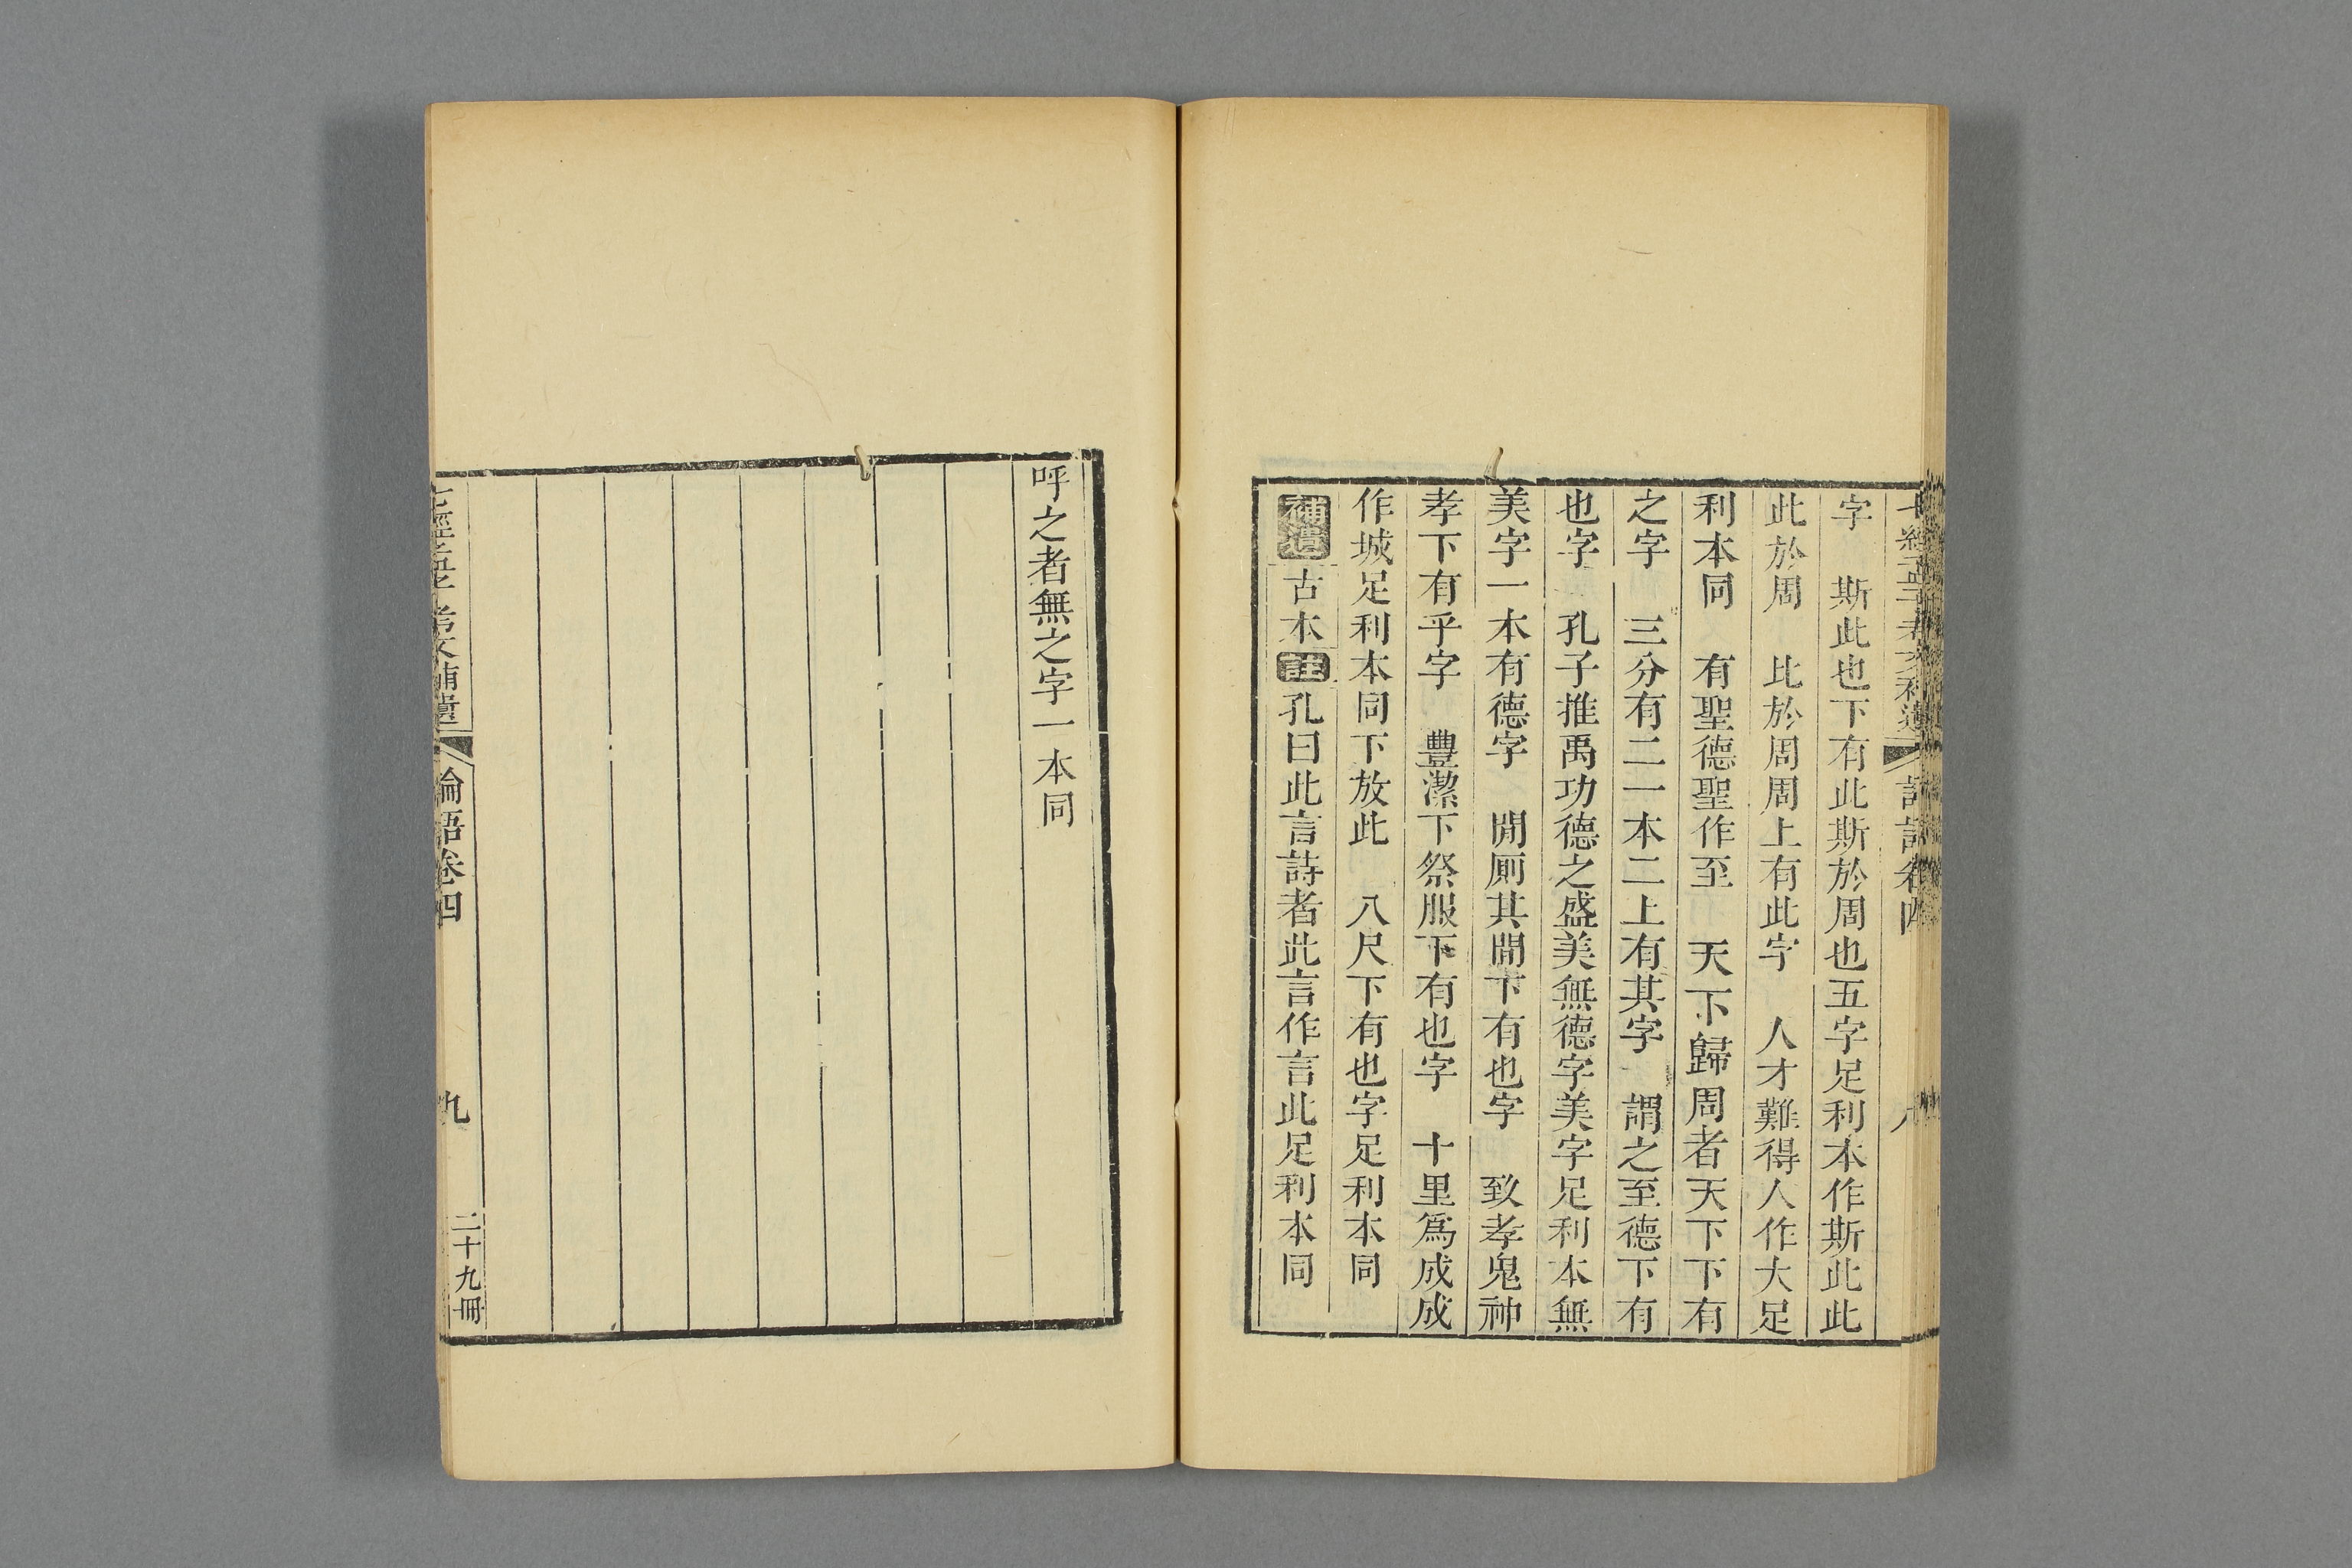 字　斯此也下有此斯於周也五字足利本作斯此此
此於周　比於周周上有此字　人才難得人作大足
利本同　有聖德聖作至　天下歸周者天下下有
之字　三分有二一本二上有其字　謂之至德下有
也字　孔子推禹功德之盛美無德字美字足利本無
美字一本有德字　閒厠其閒下有也字　致孝鬼神
孝下有乎字　豐潔下祭服下有也字　十里爲成成
作城足利本同下放此　八尺下有也字足利本同
補遺古本註孔曰此言詩者此言作言此足利本同
呼之者無之字一本同
七經孟子考文補遺　論語卷四　九　二十九冊